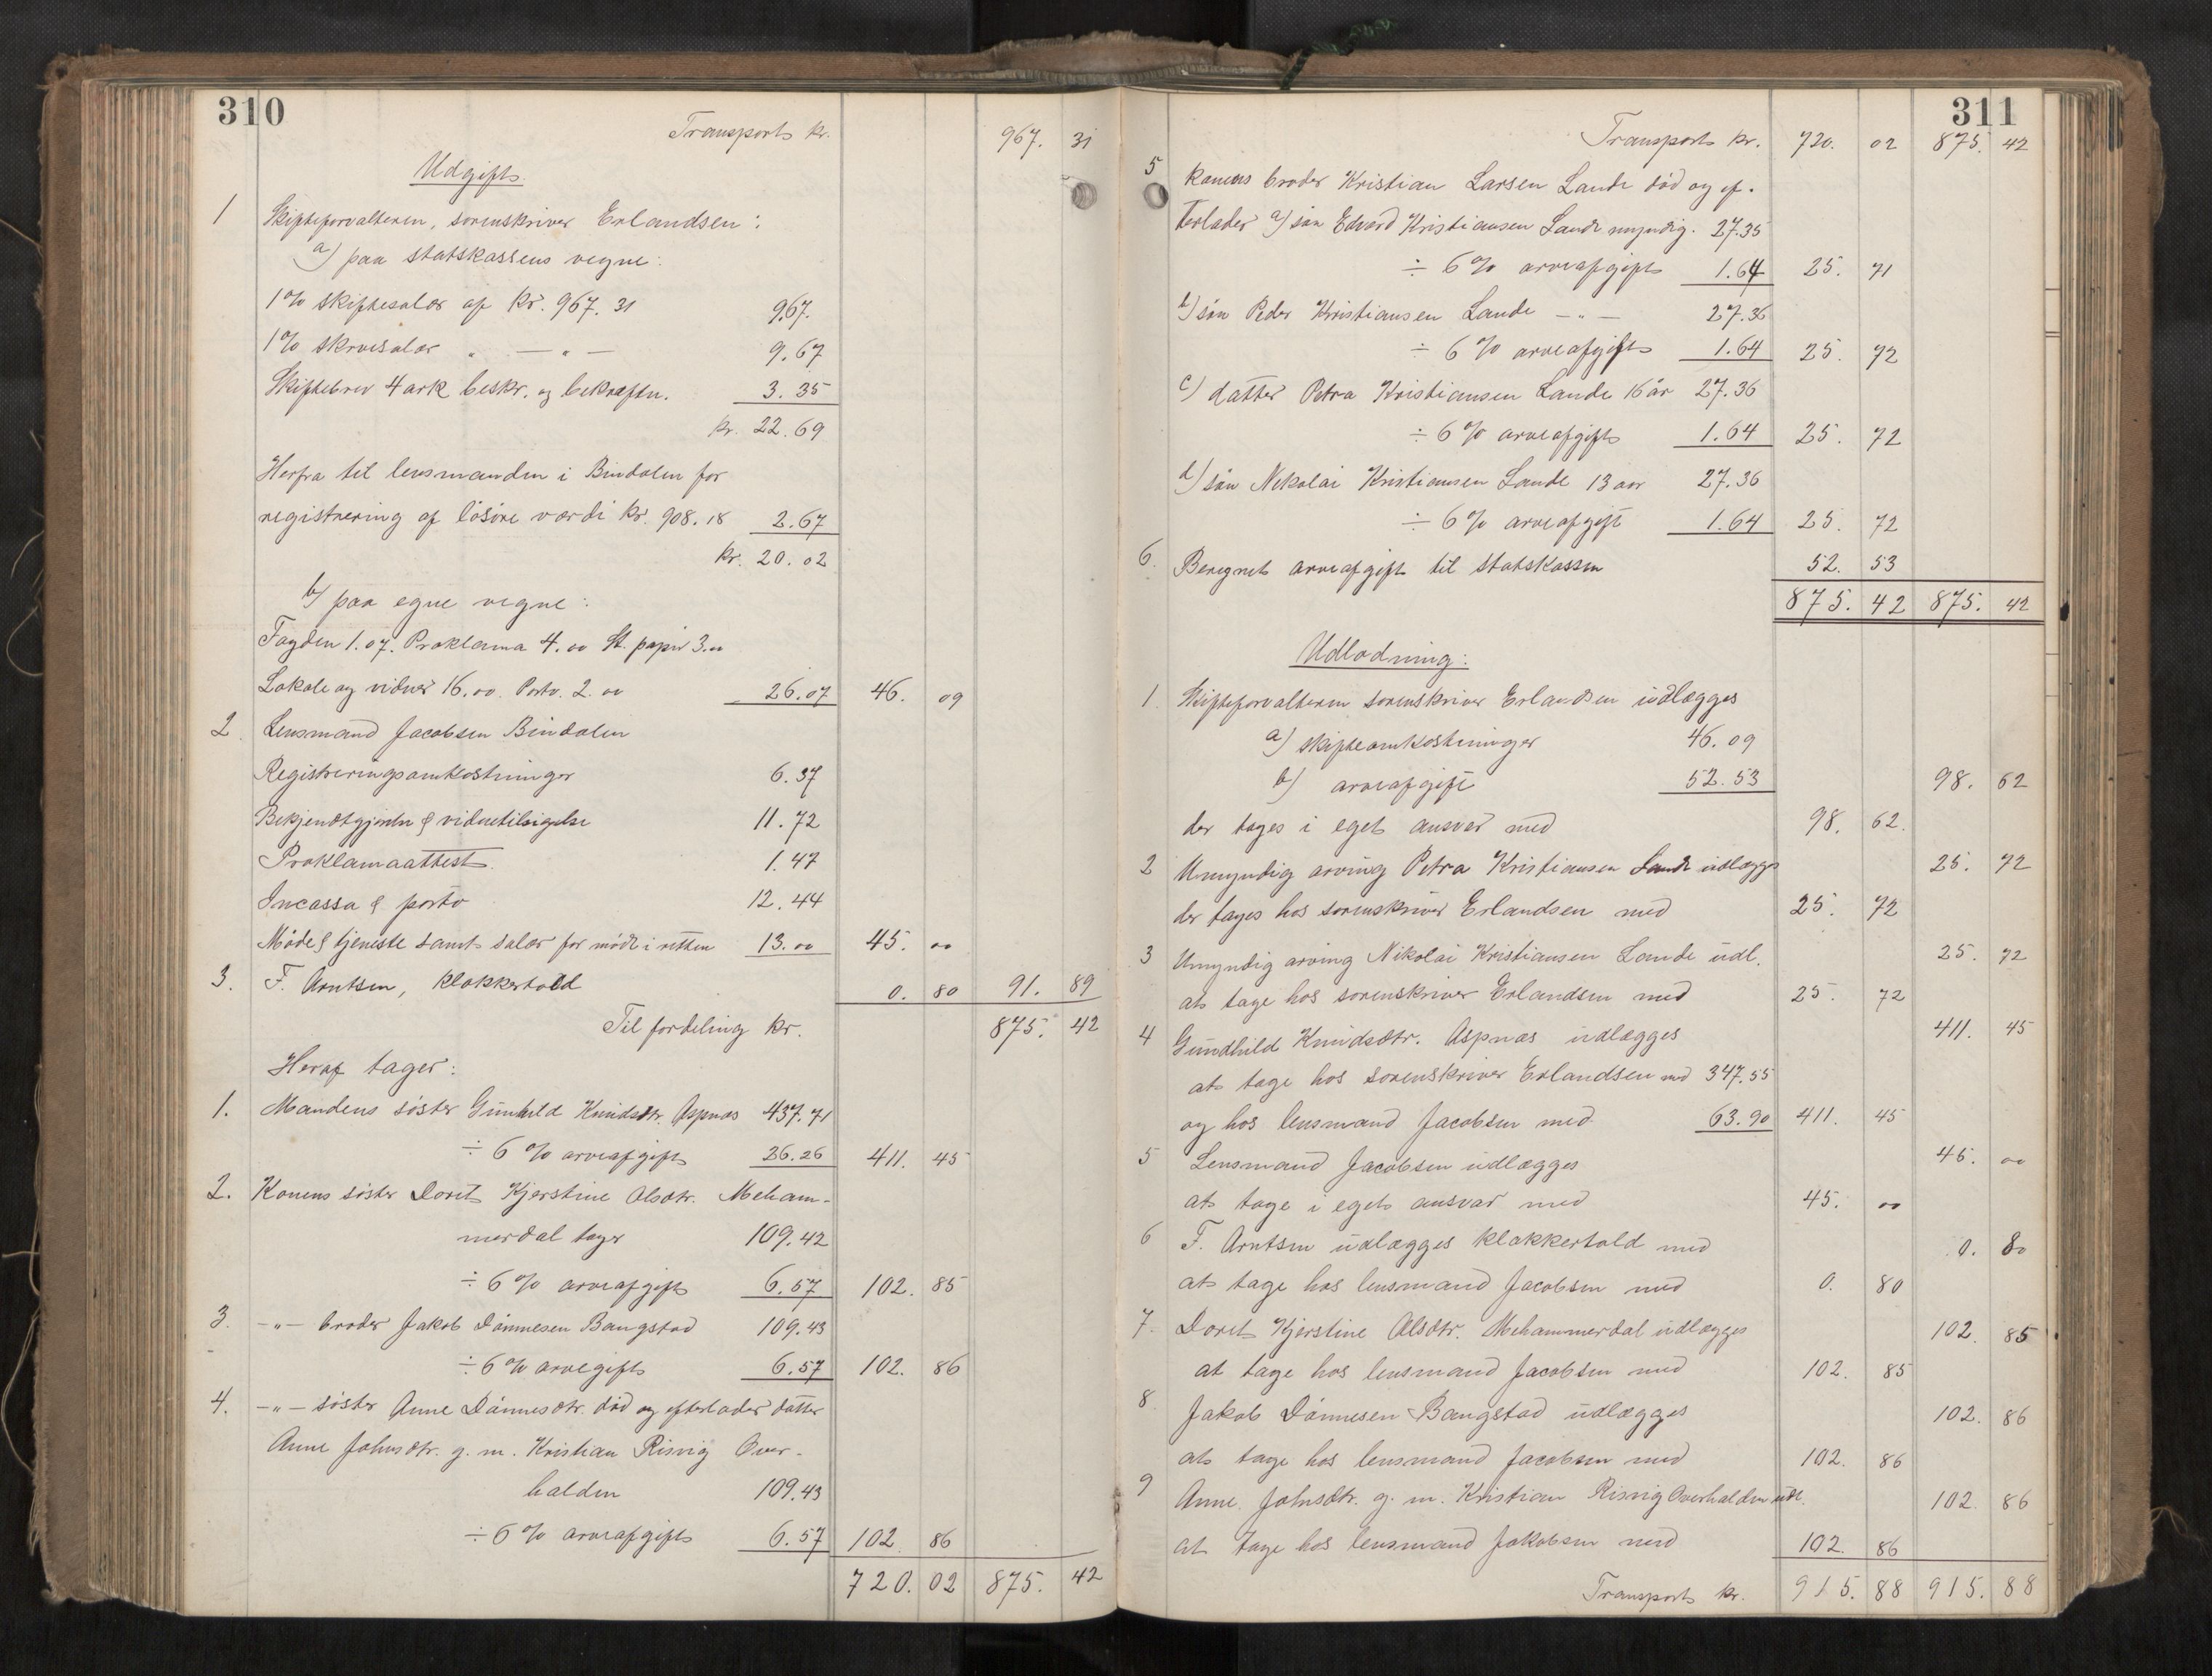 310
Transport kr. 967. 31
Udgift.
1 Skifteforvalteren, sorenskriver Erlandsen:
a) paa statskassens vegne:
1% skiftesalær af kr. 967. 31 9.67.
1% skrivesalær „ — „ — 9.67
Skiftebrev 4 ark beskr. og bekræftn. 3.35
kr. 22.69
Herfra til lensmanden i Bindalen for
registrering af lösöre værdi kr. 908.18 2.67
kr. 20.02
b) paa egne vegne:
Fogden 1.07. Proklama 4.00 St. papir 3.00
Lokale og vidner 16.00. Porto. 2.00 26.07 46. 09
2. Lensmand Jacobsen Bindalen
Registreringsomkostninger 6.37
Bekjendtgjörelse & vidnetilsigelse 11.72
Proklamaattest 1.47
Incassa & porto 12.44
Möde & tjeneste samt salær for möde i retten 13.00 45. 00
3. F. Arntsen, klokkertold 0. 80 91. 89
Til fordeling kr. 875. 42
Heraf tager:
1. Mandens söster Gunhild Knudsdtr. Aspnæs 437.71
÷ 6% arveafgift 26.26 411. 45
2. Konens söster Dorit Kjerstine Olsdtr. Meham-
merdal tager 109.42
÷ 6% arveafgift 6.57 102. 85
3. — „ — broder Jakob Dönnesen Bangstad 109.43
÷ 6% arvegift 6.57 102. 86
4. — „ — söster Anne Dönnesdtr. död og efterlader datter
Anne Johnsdtr. g. m. Kristian Risvig Over-
halden 109.43
÷ 6% arveafgift 6.57 102. 86
720. 02 875. 42
311
Transport kr. 720. 02 875. 42
5 konens broder Kristian Larsen Lande död og ef.
terlader a) sön Edvard Kristiansen Lande myndig. 27.35
÷ 6% arveafgift 1.64 25. 71
b) sön Peder Kristiansen Lande — „ — 27.36
÷ 6% arveafgift 1.64 25. 72
c) datter Petra Kristiansen Lande 16 år 27.36
÷ 6% arveafgift 1.64 25. 72
d) sön Nikolai Kristiansen Lande 13 aar 27.36
÷ 6% arveafgift 1.64 25. 72
6. Beregnet arveafgift til statskassen 52. 53
875. 42 875. 42
Udlodning:
1. Skifteforvalteren sorenskriver Erlandsen udlægges
a) skifteomkostninger 46.09
b) arveafgift 52.53 98. 62
der tages i eget ansvar med 98. 62.
2 Umyndig arving Petra Kristiansen Lande udlægges 25. 72
der tages hos sorenskriver Erlandsen med 25. 72
3 Umyndig arving Nikolai Kristiansen Lande udl. 25. 72
at tage hos sorenskriver Erlandsen med 25. 72
4 Gundhild Knudsdtr. Aspnæs udlægges 411. 45
at tage hos sorenskriver Erlandsen med 347.55
og hos lensmand Jacobsen med 63.90 411. 45
5 Lensmand Jacobsen udlægges 45. 00
at tage i eget ansvar med 45. 00
6 F. Arntsen udlægges klokkertold med 0. 80
at tage hos lensmand Jacobsen med 0. 80
7. Dorit Kjerstine Olsdtr. Mehammerdal udlægges 102. 85
at tage hos lensmand Jacobsen med 102. 85
8 Jakob Dönnesen Bangstad udlægges 102. 86
at tage hos lensmand Jacobsen med 102. 86
9 Anne Johnsdtr. g. m. Kristian Risvig Overhalden udl. 102. 86
at tage hos lensmand Jakobsen med 102. 86
Transport kr. 915. 88 915. 88